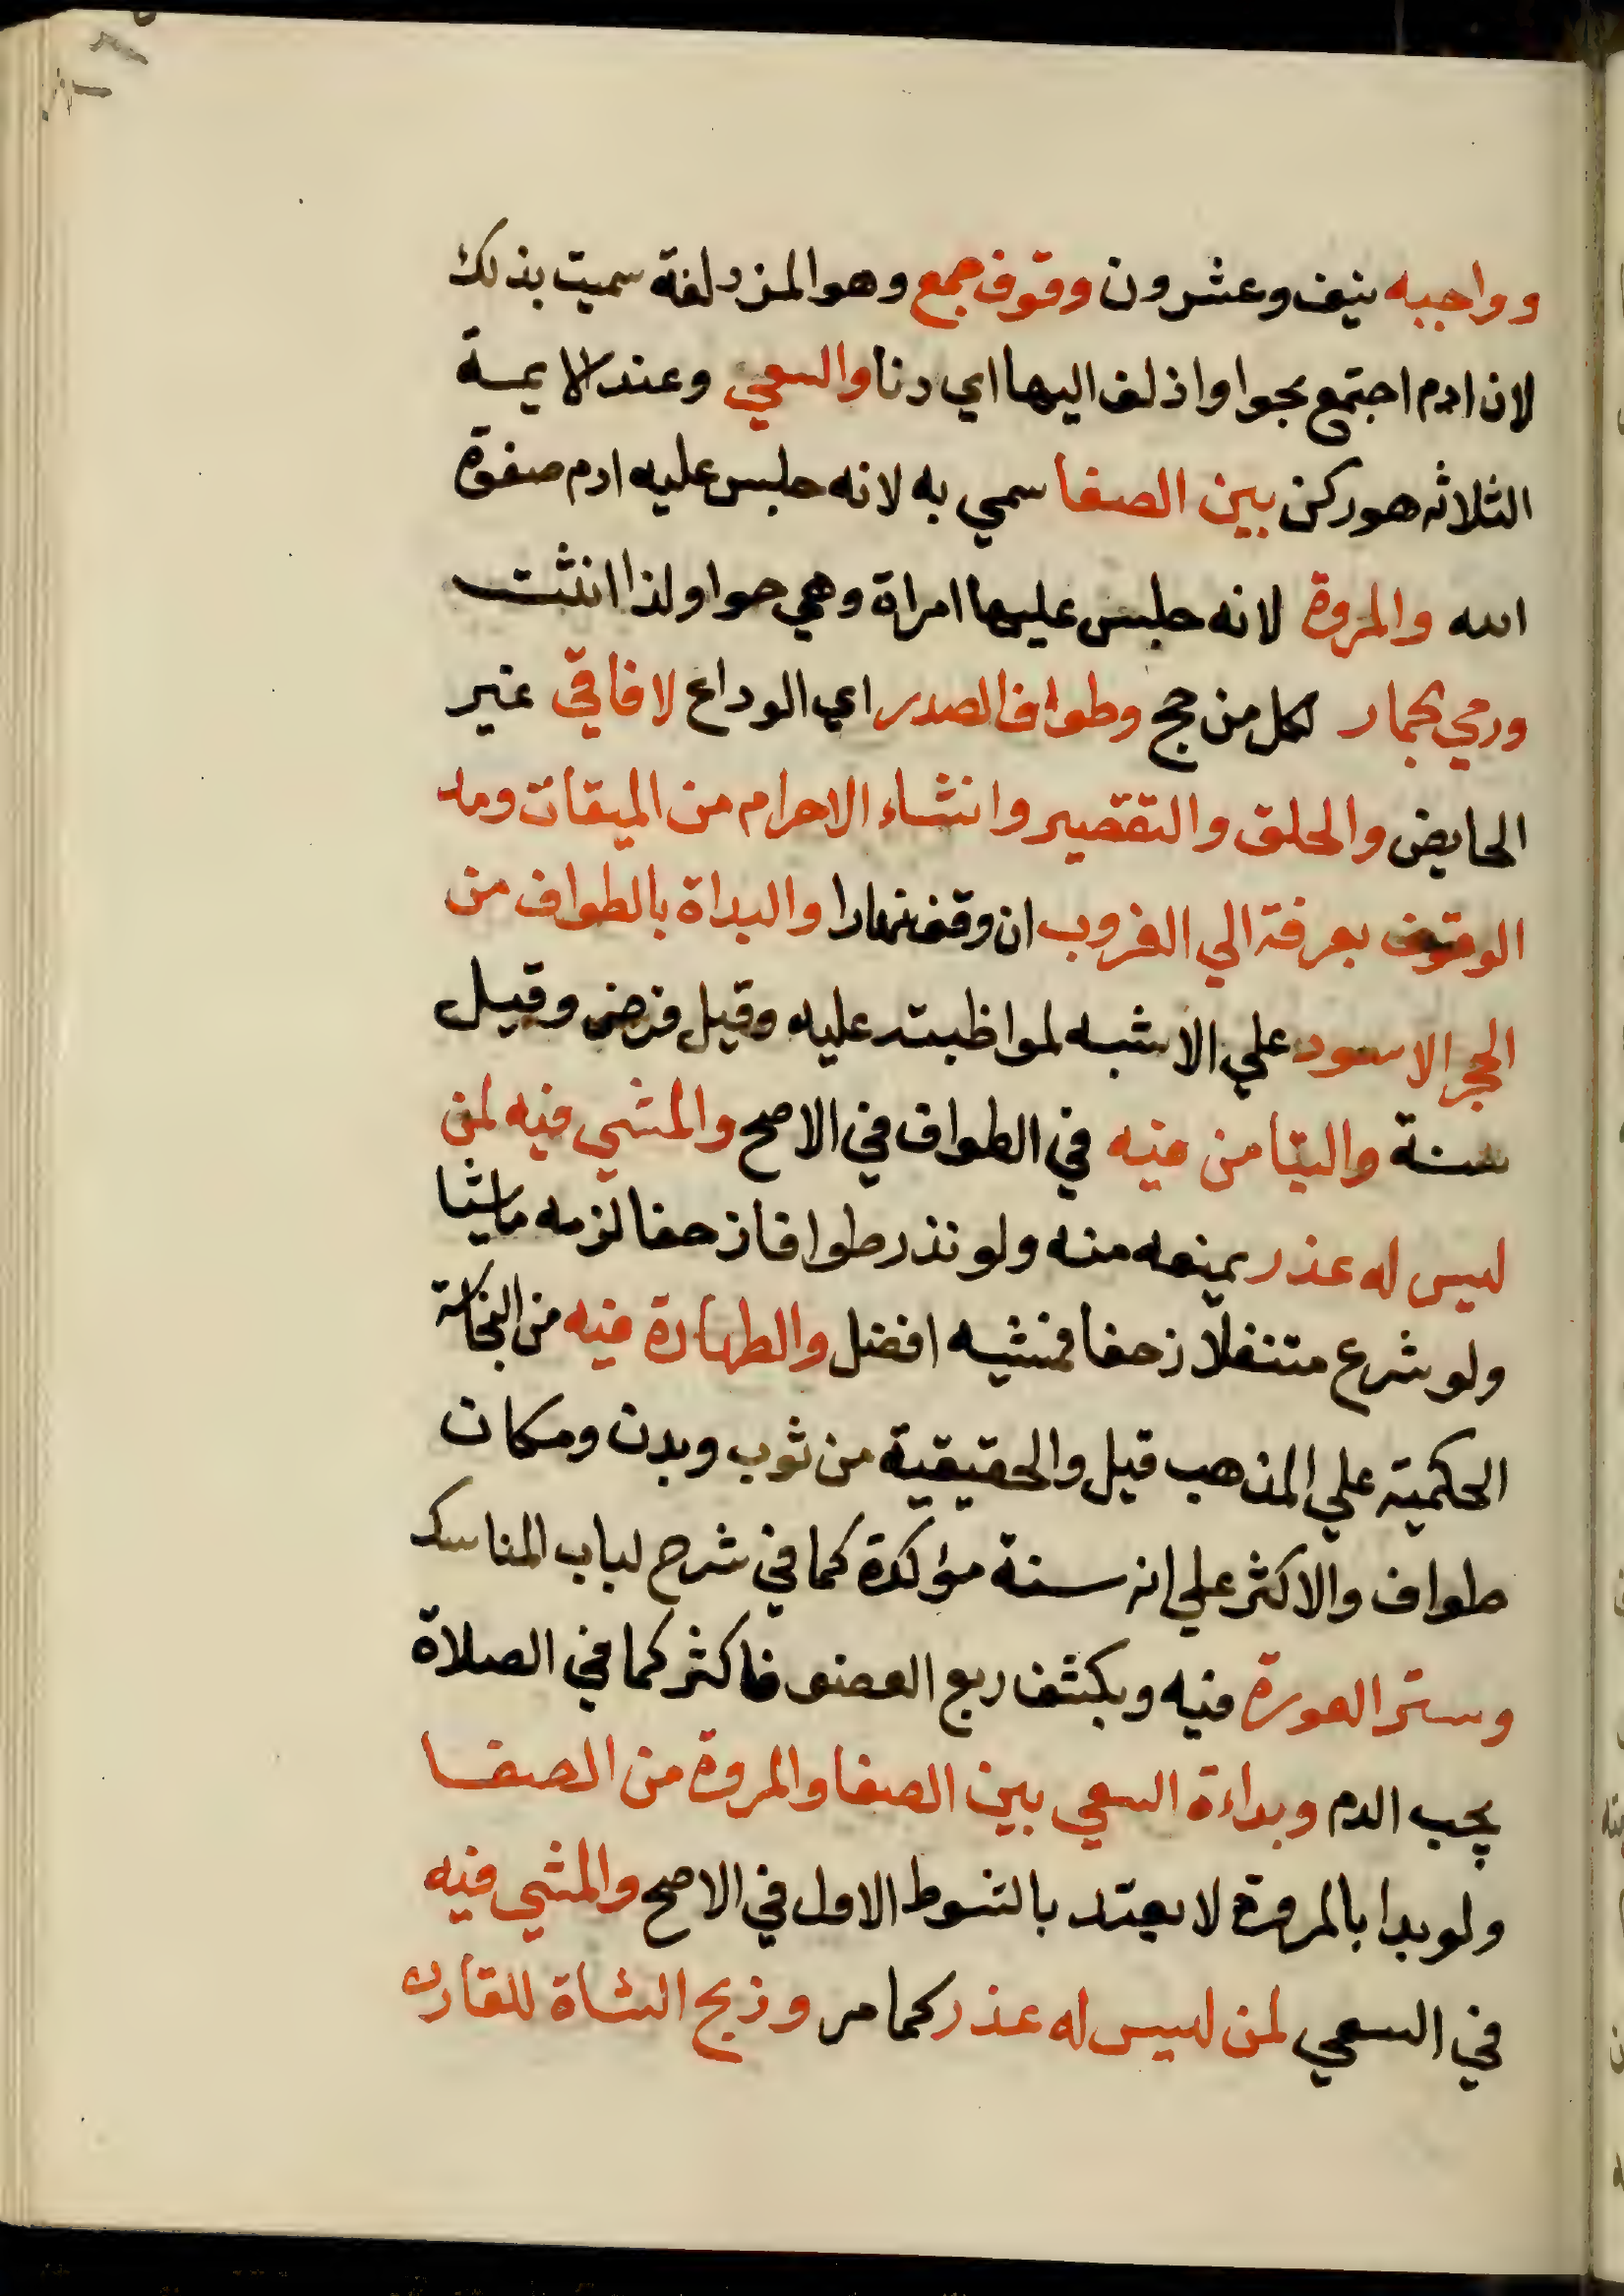 وواجبه نيف وعشرون وقوف جمع وهو المزدلفة سميت بذلك
لان ادم اجتمع بحوا واذلف اليها اي دنا والسعي وعند الايمة
الثلاثه هو ركن بين الصفا سمي به لانه جلس عليه ادم صفوة
الله والمروة لانه جلس عليها امراة وهي حوا ولذا انثت
ورمي الجمار لكل من حج وطواف الصدر اي الوداع لافاقي غير
الحايض والحلق والتقصير وانشاء الاحرام من الميقات ومد
الوقوف بعرفة الي الغروب ان وقف نهارا والبداة بالطواف من
الحجر الاسود علي الاشبه لمواظبته عليه وقيل فرض وقيل
سنة والتيامن فيه في الطواف في الاصح والمشي فيه لمن
ليس له عذر يمنعه منه ولو نذر طوافا زحفا لزمه ماشيا
ولو شرع متنفلا زحفا فمشيه افضل والطهارة فيه من النجاسة
الحكمية علي المذهب قيل والحقيقية من ثوب وبدن ومكان
طواف والاكثر علي انه سنة مؤكدة كما في شرح لباب المناسك
وستر العورة فيه وبكشف ربع العضو فاكثر كما في الصلاة
يجب الدم وبداءة السعي بين الصفا والمروة من الصفا
ولو بدا بالمروة لا يعتد بالشوط الاول في الاصح والمشي فيه
في السعي لمن ليس له عذر كما مر وذبح الشاة للقارن